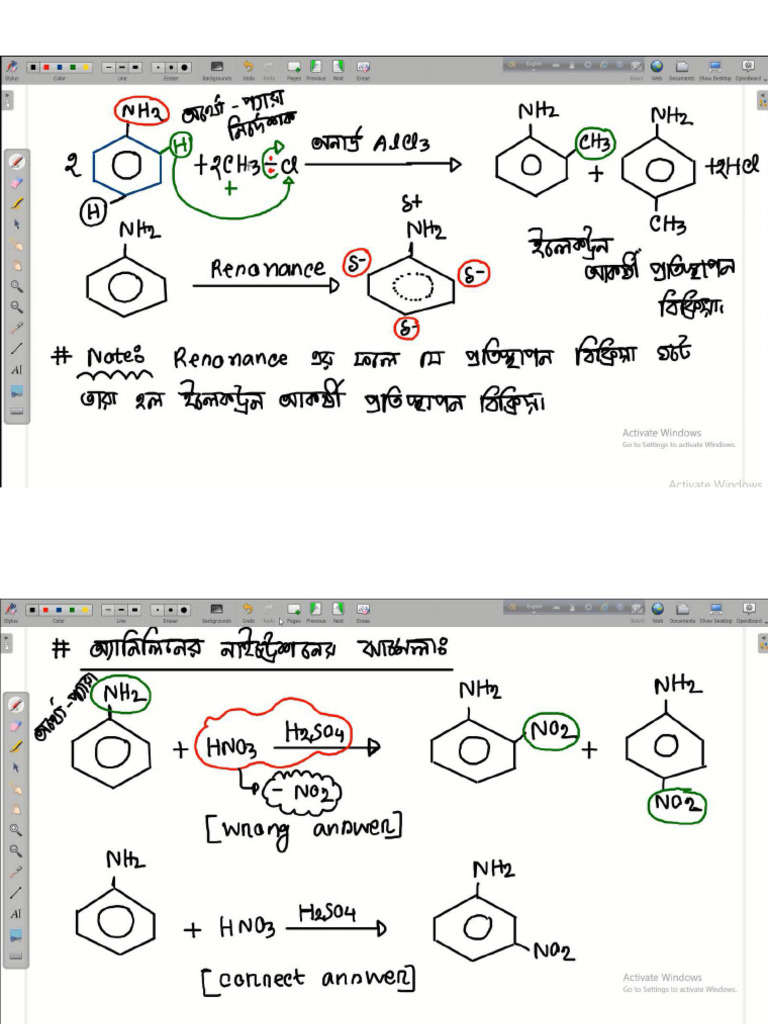 Stylus Color Line Eraser Backgrounds Undo Redo Pages Previous Next Erase Board Web Documents Show Desktop OpenBoard
NH2 অর্থো-প্যারা নির্দেশক
2 H + 2CH3 ÷ Cl অনার্দ্র AlCl3 NH2 CH3 + NH2 CH3 + 2HCl
H +
NH2 Renonance δ+ NH2 δ- δ- δ-
ইলেকট্রন
আকর্ষী প্রতিস্থাপন
বিক্রিয়া।
# Note: Renonance এর ফলে যে প্রতিস্থাপন বিক্রিয়া ঘটে
তারা হল ইলেকট্রন আকর্ষী প্রতিস্থাপন বিক্রিয়া।
Activate Windows
Go to Settings to activate Windows.
Activate Windows
Stylus Color Line Eraser Backgrounds Undo Redo Pages Previous Next Erase Board Web Documents Show Desktop OpenBoard
# অ্যানিলিনের নাইট্রেশনের ঝামেলাঃ
অর্থো-প্যারা NH2 NH2 NH2
+ HNO3 H2SO4 NO2 +
- NO2 NO2
[wrong answer]
NH2 NH2
+ HNO3 H2SO4 NO2
[correct answer]
Activate Windows
Go to Settings to activate Windows.